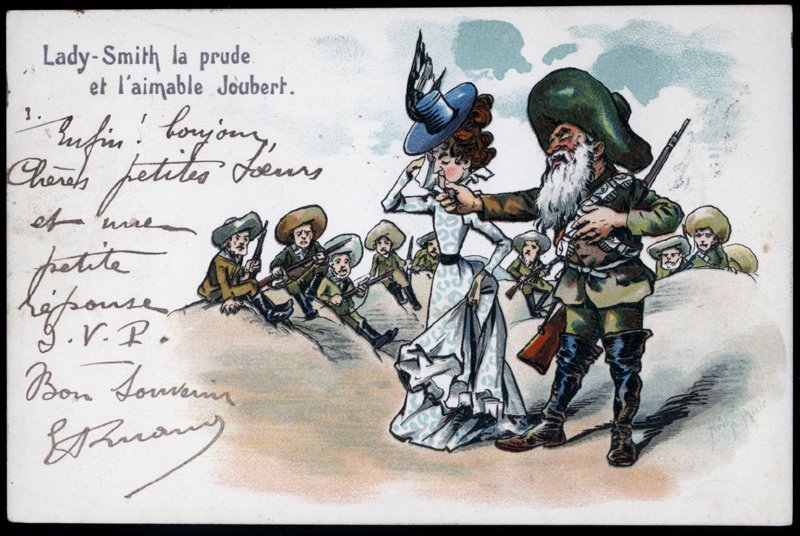 Lady-Smith la prude
et l'aimable Joubert.
Enfin! bonjour,
Chères petites Sœurs
et une
petite
réponse
S.V.P.
Bon Souvenir